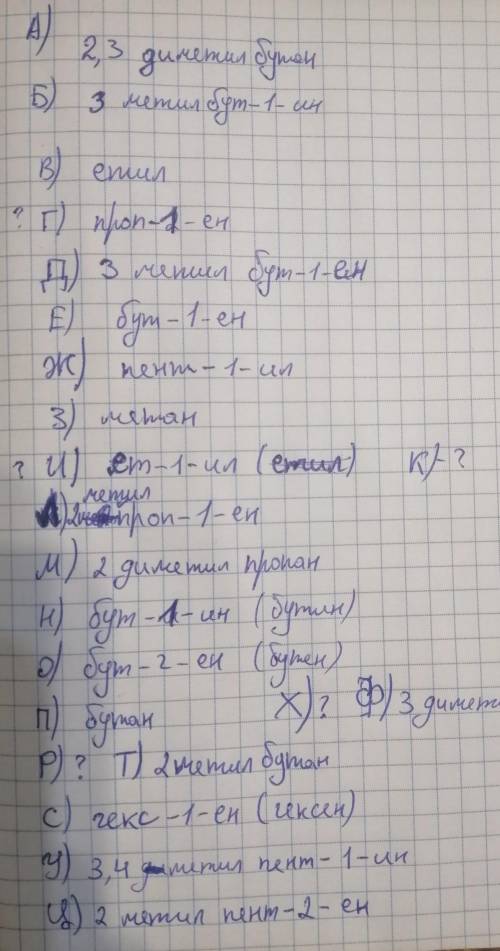 А) 2,3 диметил бутан
Б) 3 метил бут-1-ин
В) етил
? Г) проп-1-ен
Д) 3 метил бут-1-ен
Е) бут-1-ен
Ж) пент-1-ил
З) метан
? И) ет-1-ил (етил) К)-?
Л) 2 метил проп-1-ен
М) 2 диметил пропан
Н) бут-1-ин (бутин)
О) бут-2-ен (бутен)
П) бутан Х)? Ф) 3 димет
Р)? Т) 2 метил бутан
С) гекс-1-ен (гексен)
У) 3,4 метил пент-1-ин
Ц) 2 метил пент-2-ен